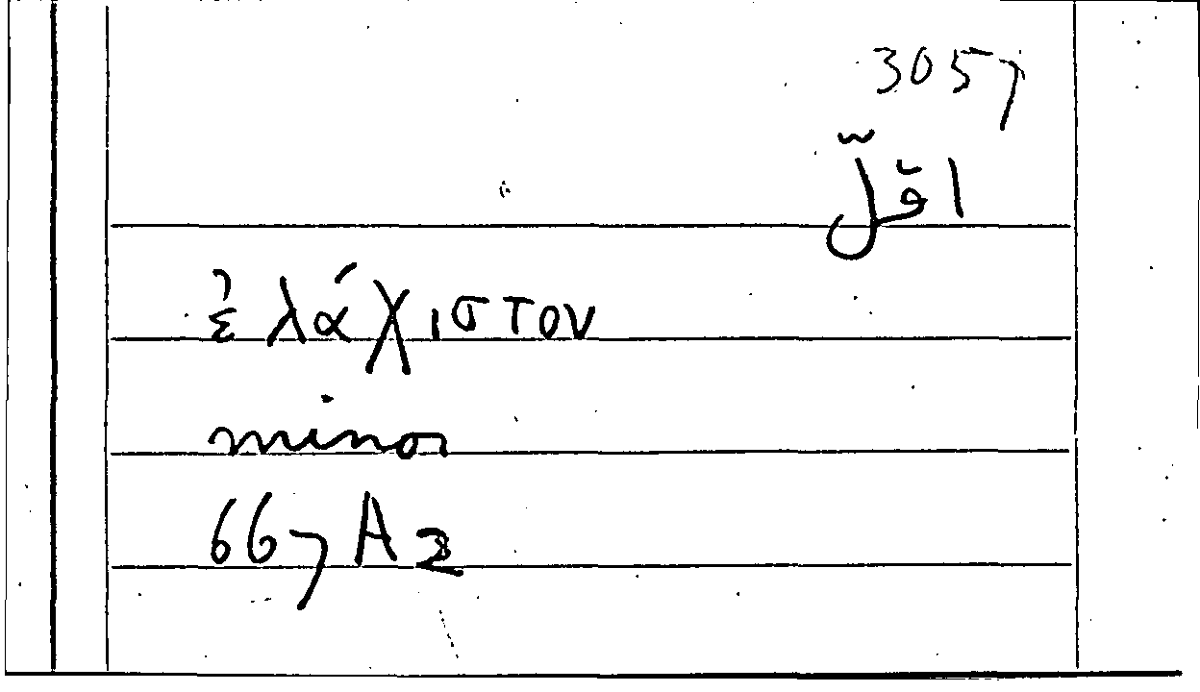 3057
اقلّ
ἐλάχιστον
minor
667 A 2